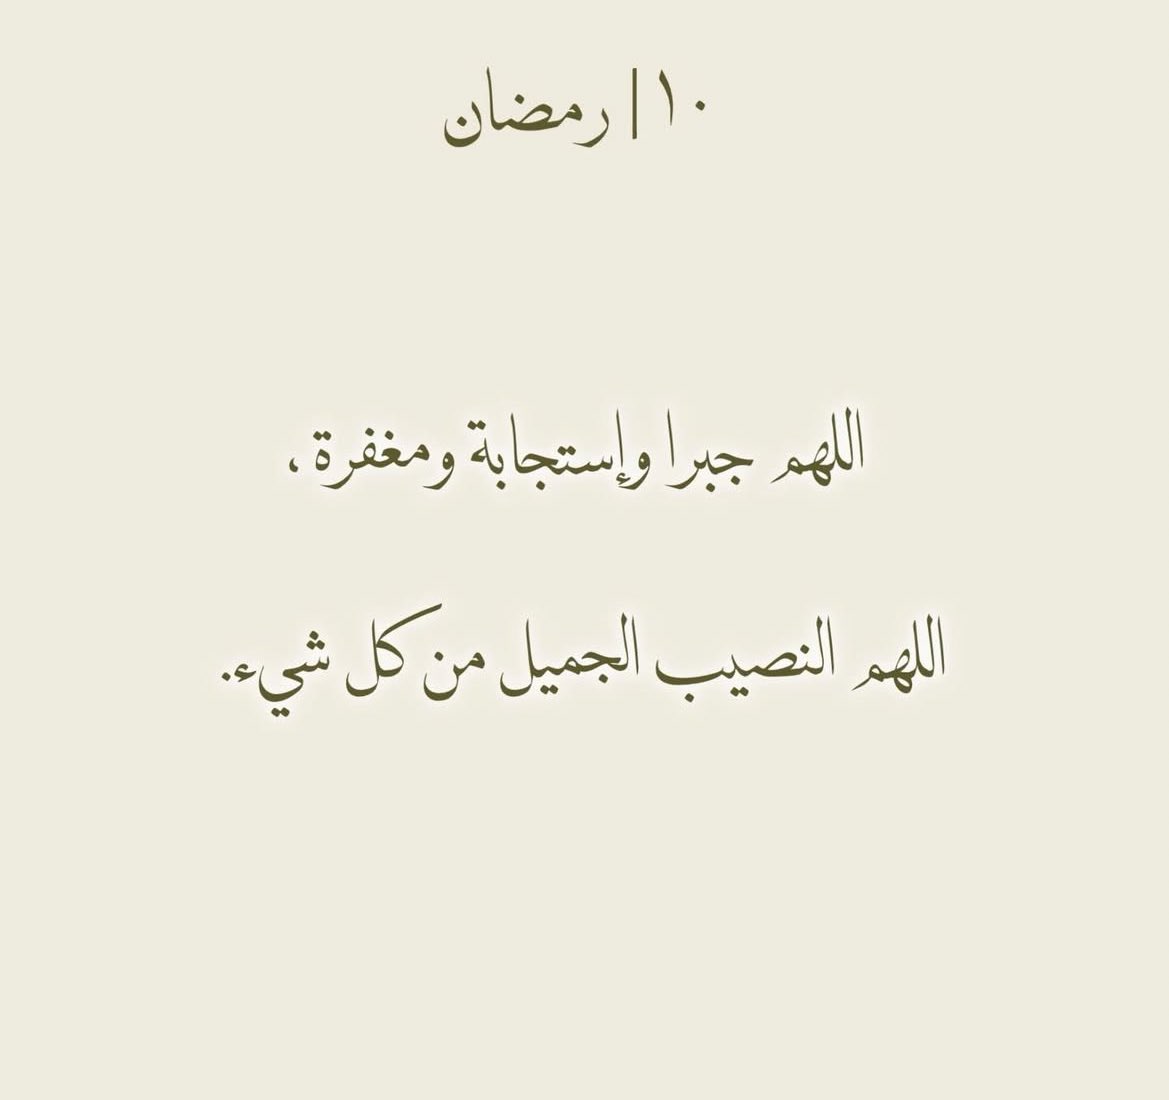 ١٠ | رمضان
اللهم جبرا وإستجابة ومغفرة ،
اللهم النصيب الجميل من كل شيء.